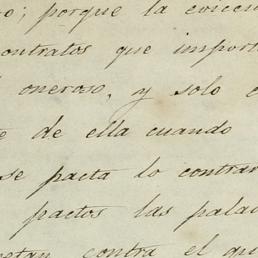 o; porque la evicci
contratos que import
l oneroso, y solo e
e de ella cuando
se pacta lo contrar
pactos las palab
etan contra el qu